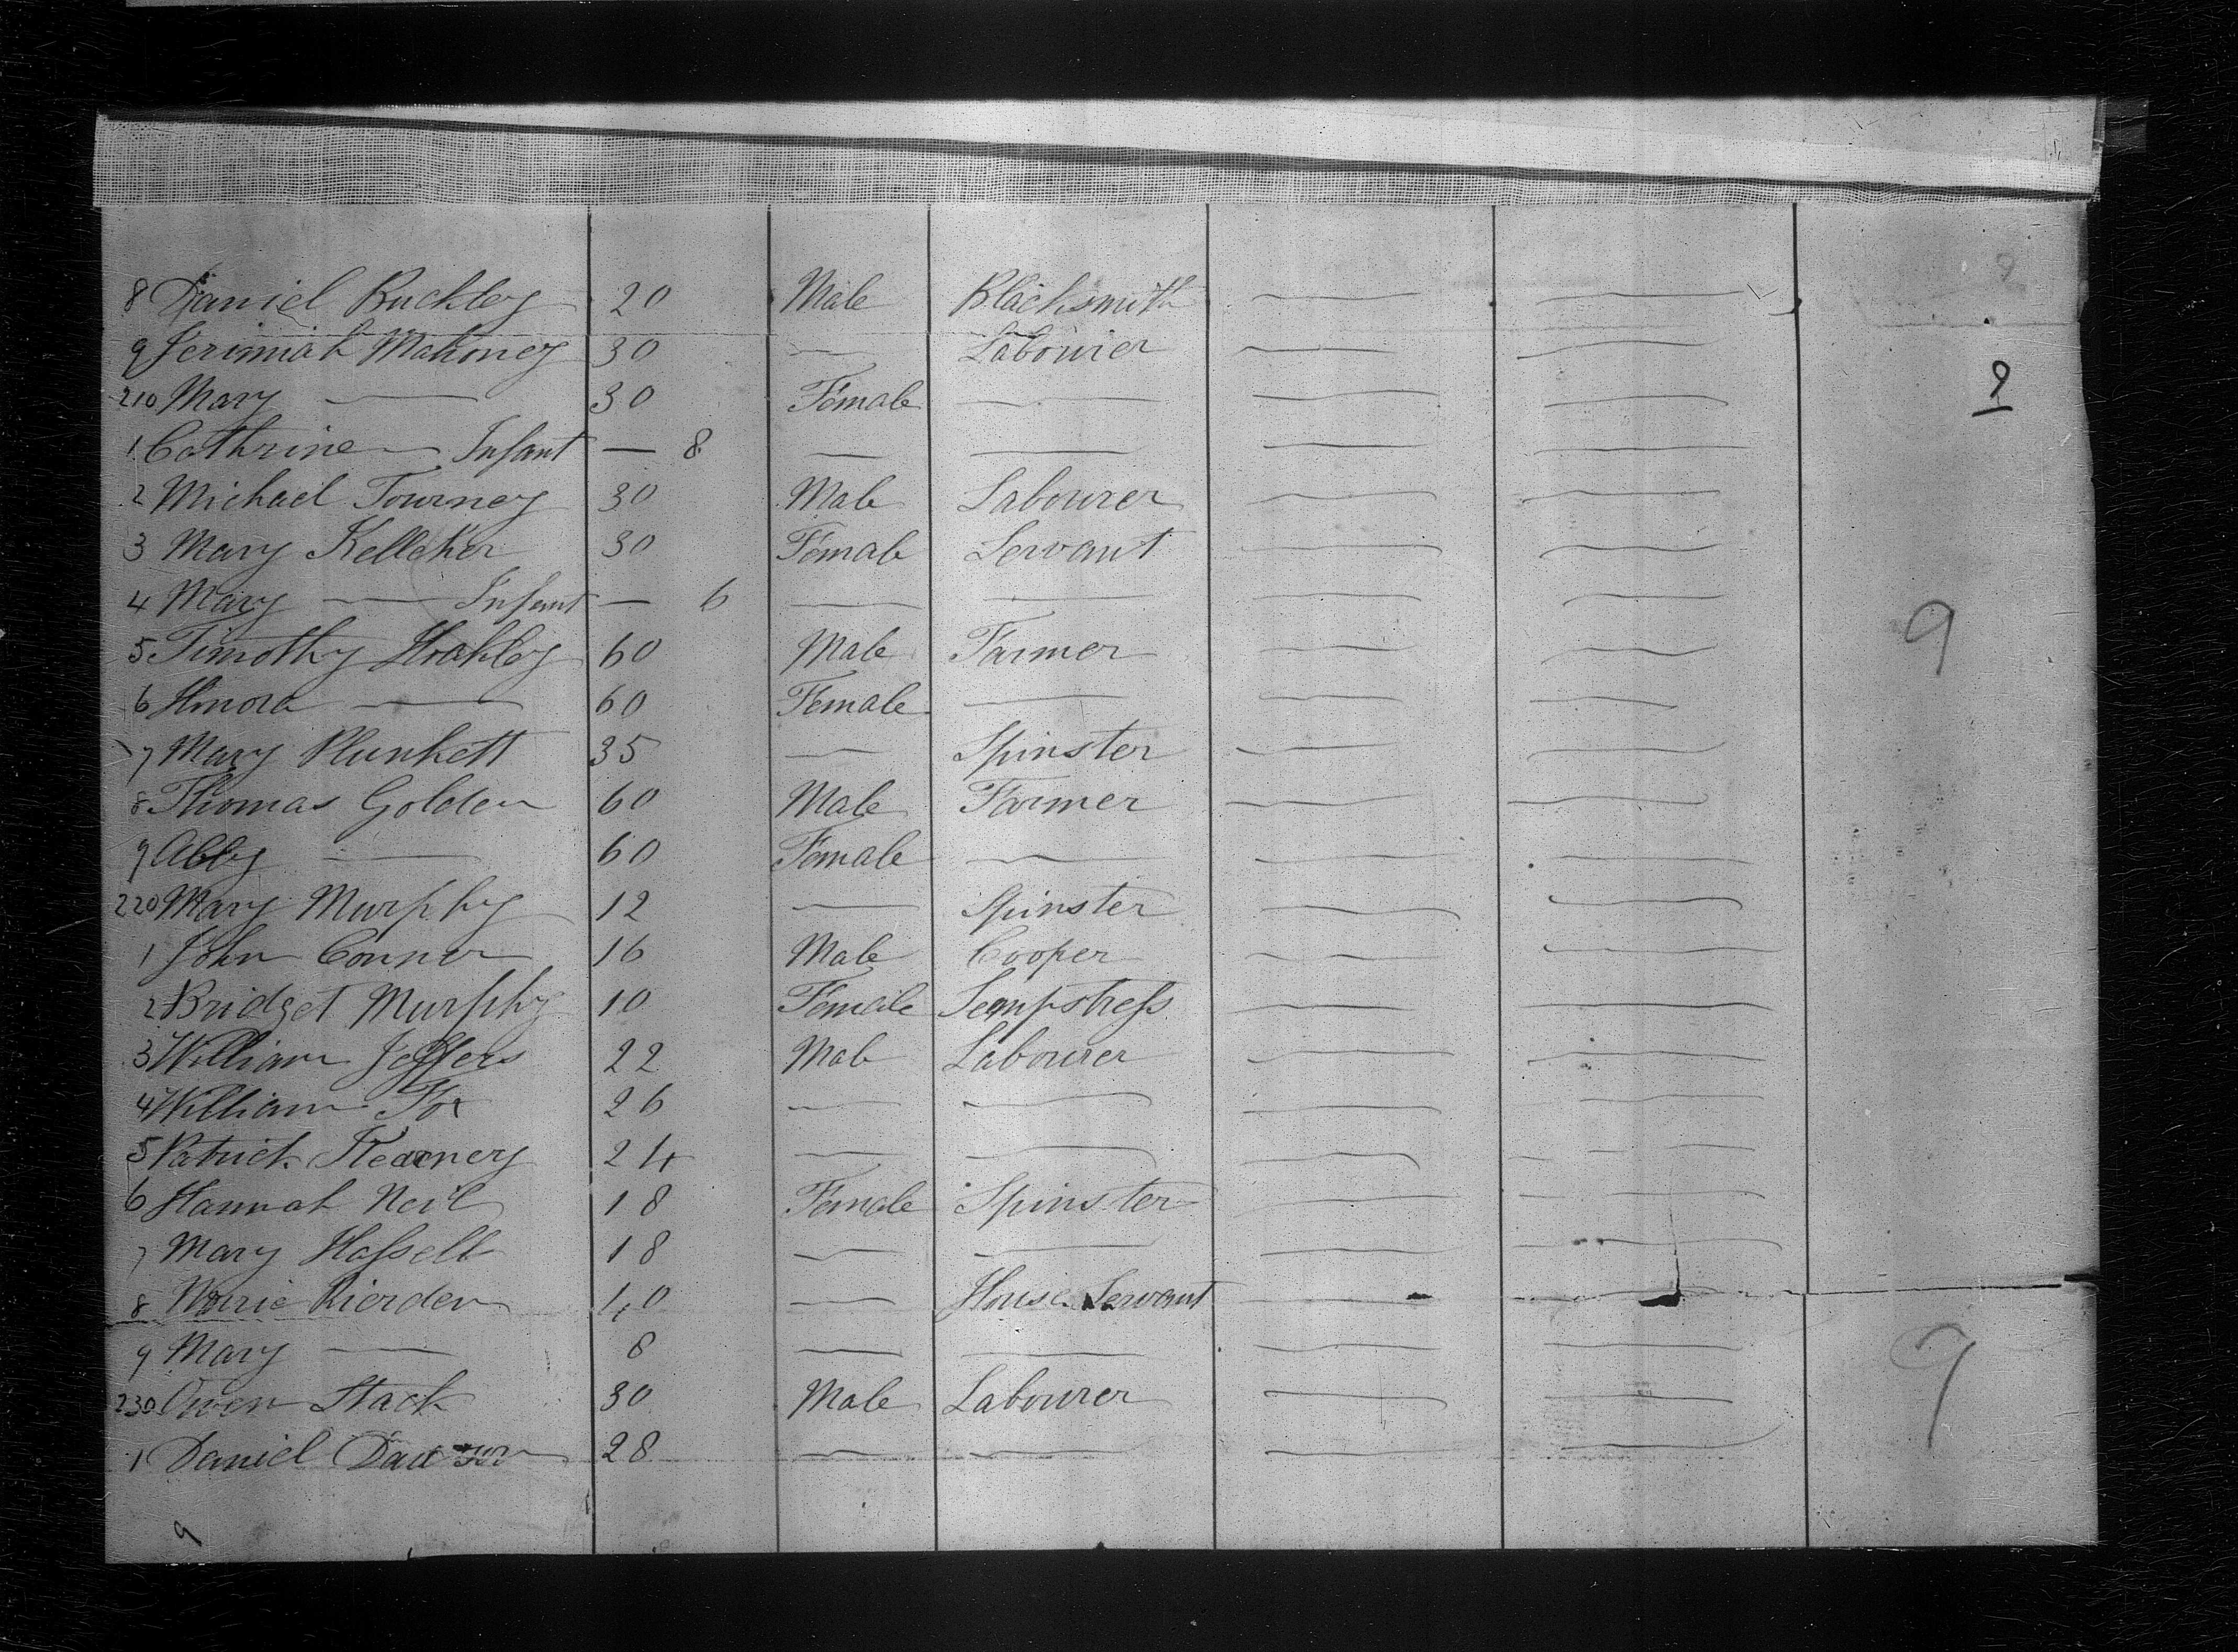 9
8 Daniel Buckley 20 Male Blacksmith — —
9 Jerimiah Mahoney 30 — Labourer — —
9
210 Mary — 30 Female — — —
1 Cathrine — Infant — 8 — — — —
2 Michael Tourney 30 Male Labourer — —
3 Mary Kelleher 30 Female Servant — —
4 Mary — Infant — 6 — — — —
9
5 Timothy 60 Male Farmer — —
6 Honora — 60 Female — — —
7 Mary Plunkett 35 — Spinster — —
8 Thomas Golden 60 Male Farmer — —
9 Abby — 60 Female — — —
220 Mary Murphy 12 — Spinster — —
1 John Conner 16 Male Cooper — —
2 Bridget Murphy 10 Female Sempstress — —
3 William Jeffers 22 Male Labourer — —
4 William Fox 26 — — — —
5 Patrick 24 — — — —
6 Hannah Neil 18 Female Spinster — —
7 Mary Hassell 18 — — — —
8 Rierden 40 — House Servant — —
9 Mary — 8 — — — —
9
230 Owen Stack 30 Male Labourer — —
1 Daniel 28 — — — —
9